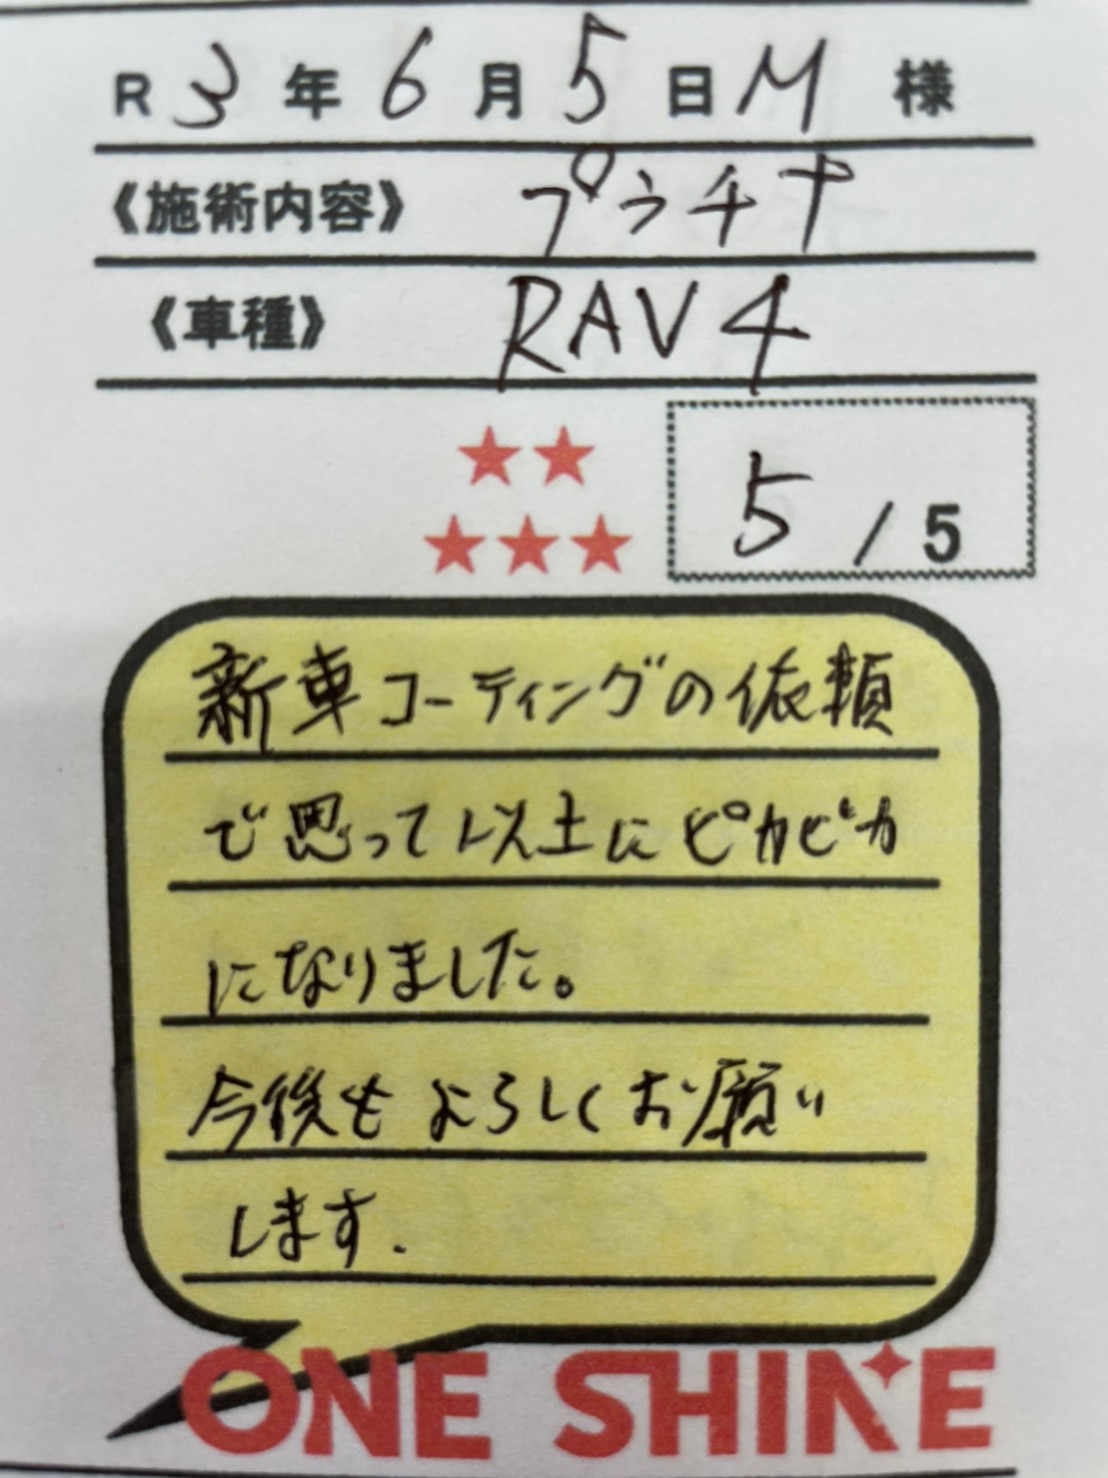 R 3 年 6 月 5 日 M 様
《施術内容》 プラチナ
《車種》 RAV4
★★
★★★
5 / 5
新車コーティングの依頼
で思って以上にピカピカ
になりました。
今後もよろしくお願い
します.
ONE SHINE